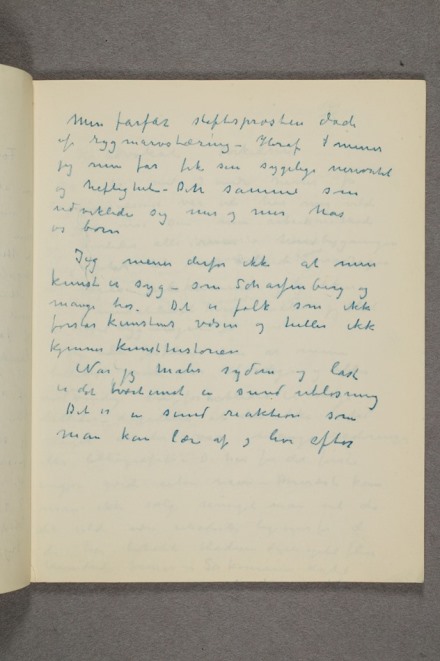 Min farfar stiftsprosten døde
af rygmarvstæring – Heraf
jeg min far fik sin sygelige nervøsitet
og heftighed – Det samme som
udviklede sig mer og mer hos
os børn
Jeg mener derfor ikke at min
kunst er syg – som Scharfenberg og
mange tror. Det er folk som ikke
forstår kunstens væsen og heller ikke
kjenner kunsthistorien
Når jeg maler sygdom og last
er det tværtimod en sund utløsning
Det er en sund reaktion som
man kan lære af og leve efter